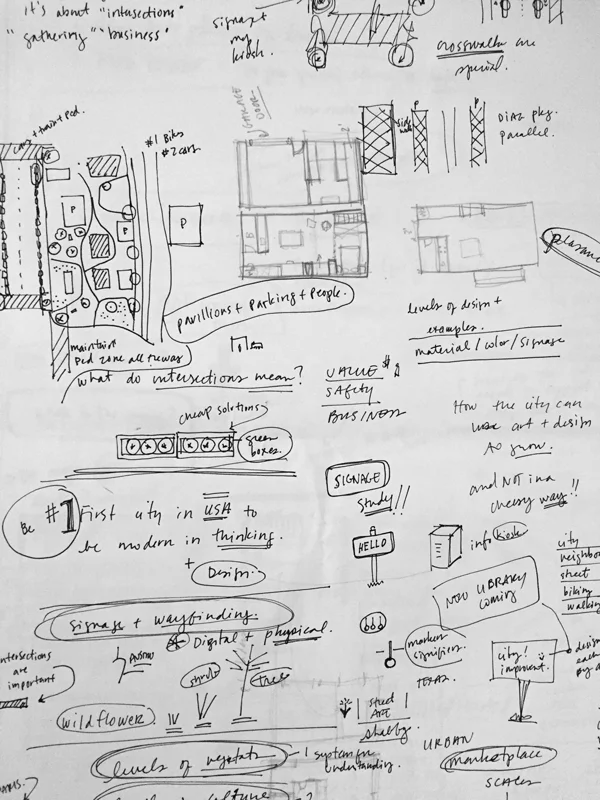 it's about "intersections"
"gathering" "business"
signage +
my
kiosk.
crosswalks are
special.
GARAGE
DOOR
side
walk
P
P
DIAZ pkg.
parallel.
#1 Bikes
#2 cars
P
P
P
pleasant
pavillions + parking + people.
levels of design +
examples.
material / color / signage
maintain
Ped zone all the way
what do intersections mean?
VALUE $
SAfety
BUSINESS
How the city can
use art + design
to grow.
cheap solutions
green
boxes.
and NOT in a
cheesy way!!
SIGNAGE
study!!
Be #1 First city in USA to
be modern in thinking.
+
Design.
HELLO
info kiosk
city
street
biking
walking
NEW LIBRARY
coming
signage + wayfinding.
Digital + physical.
marker
signifiers
city!
improvent.
intersections
are
important
shrub
tree
wildflower
TEXAS.
street
ART
shelby
URBAN
marketplace
SCALES
levels of vegetate
1 system for
understanding.